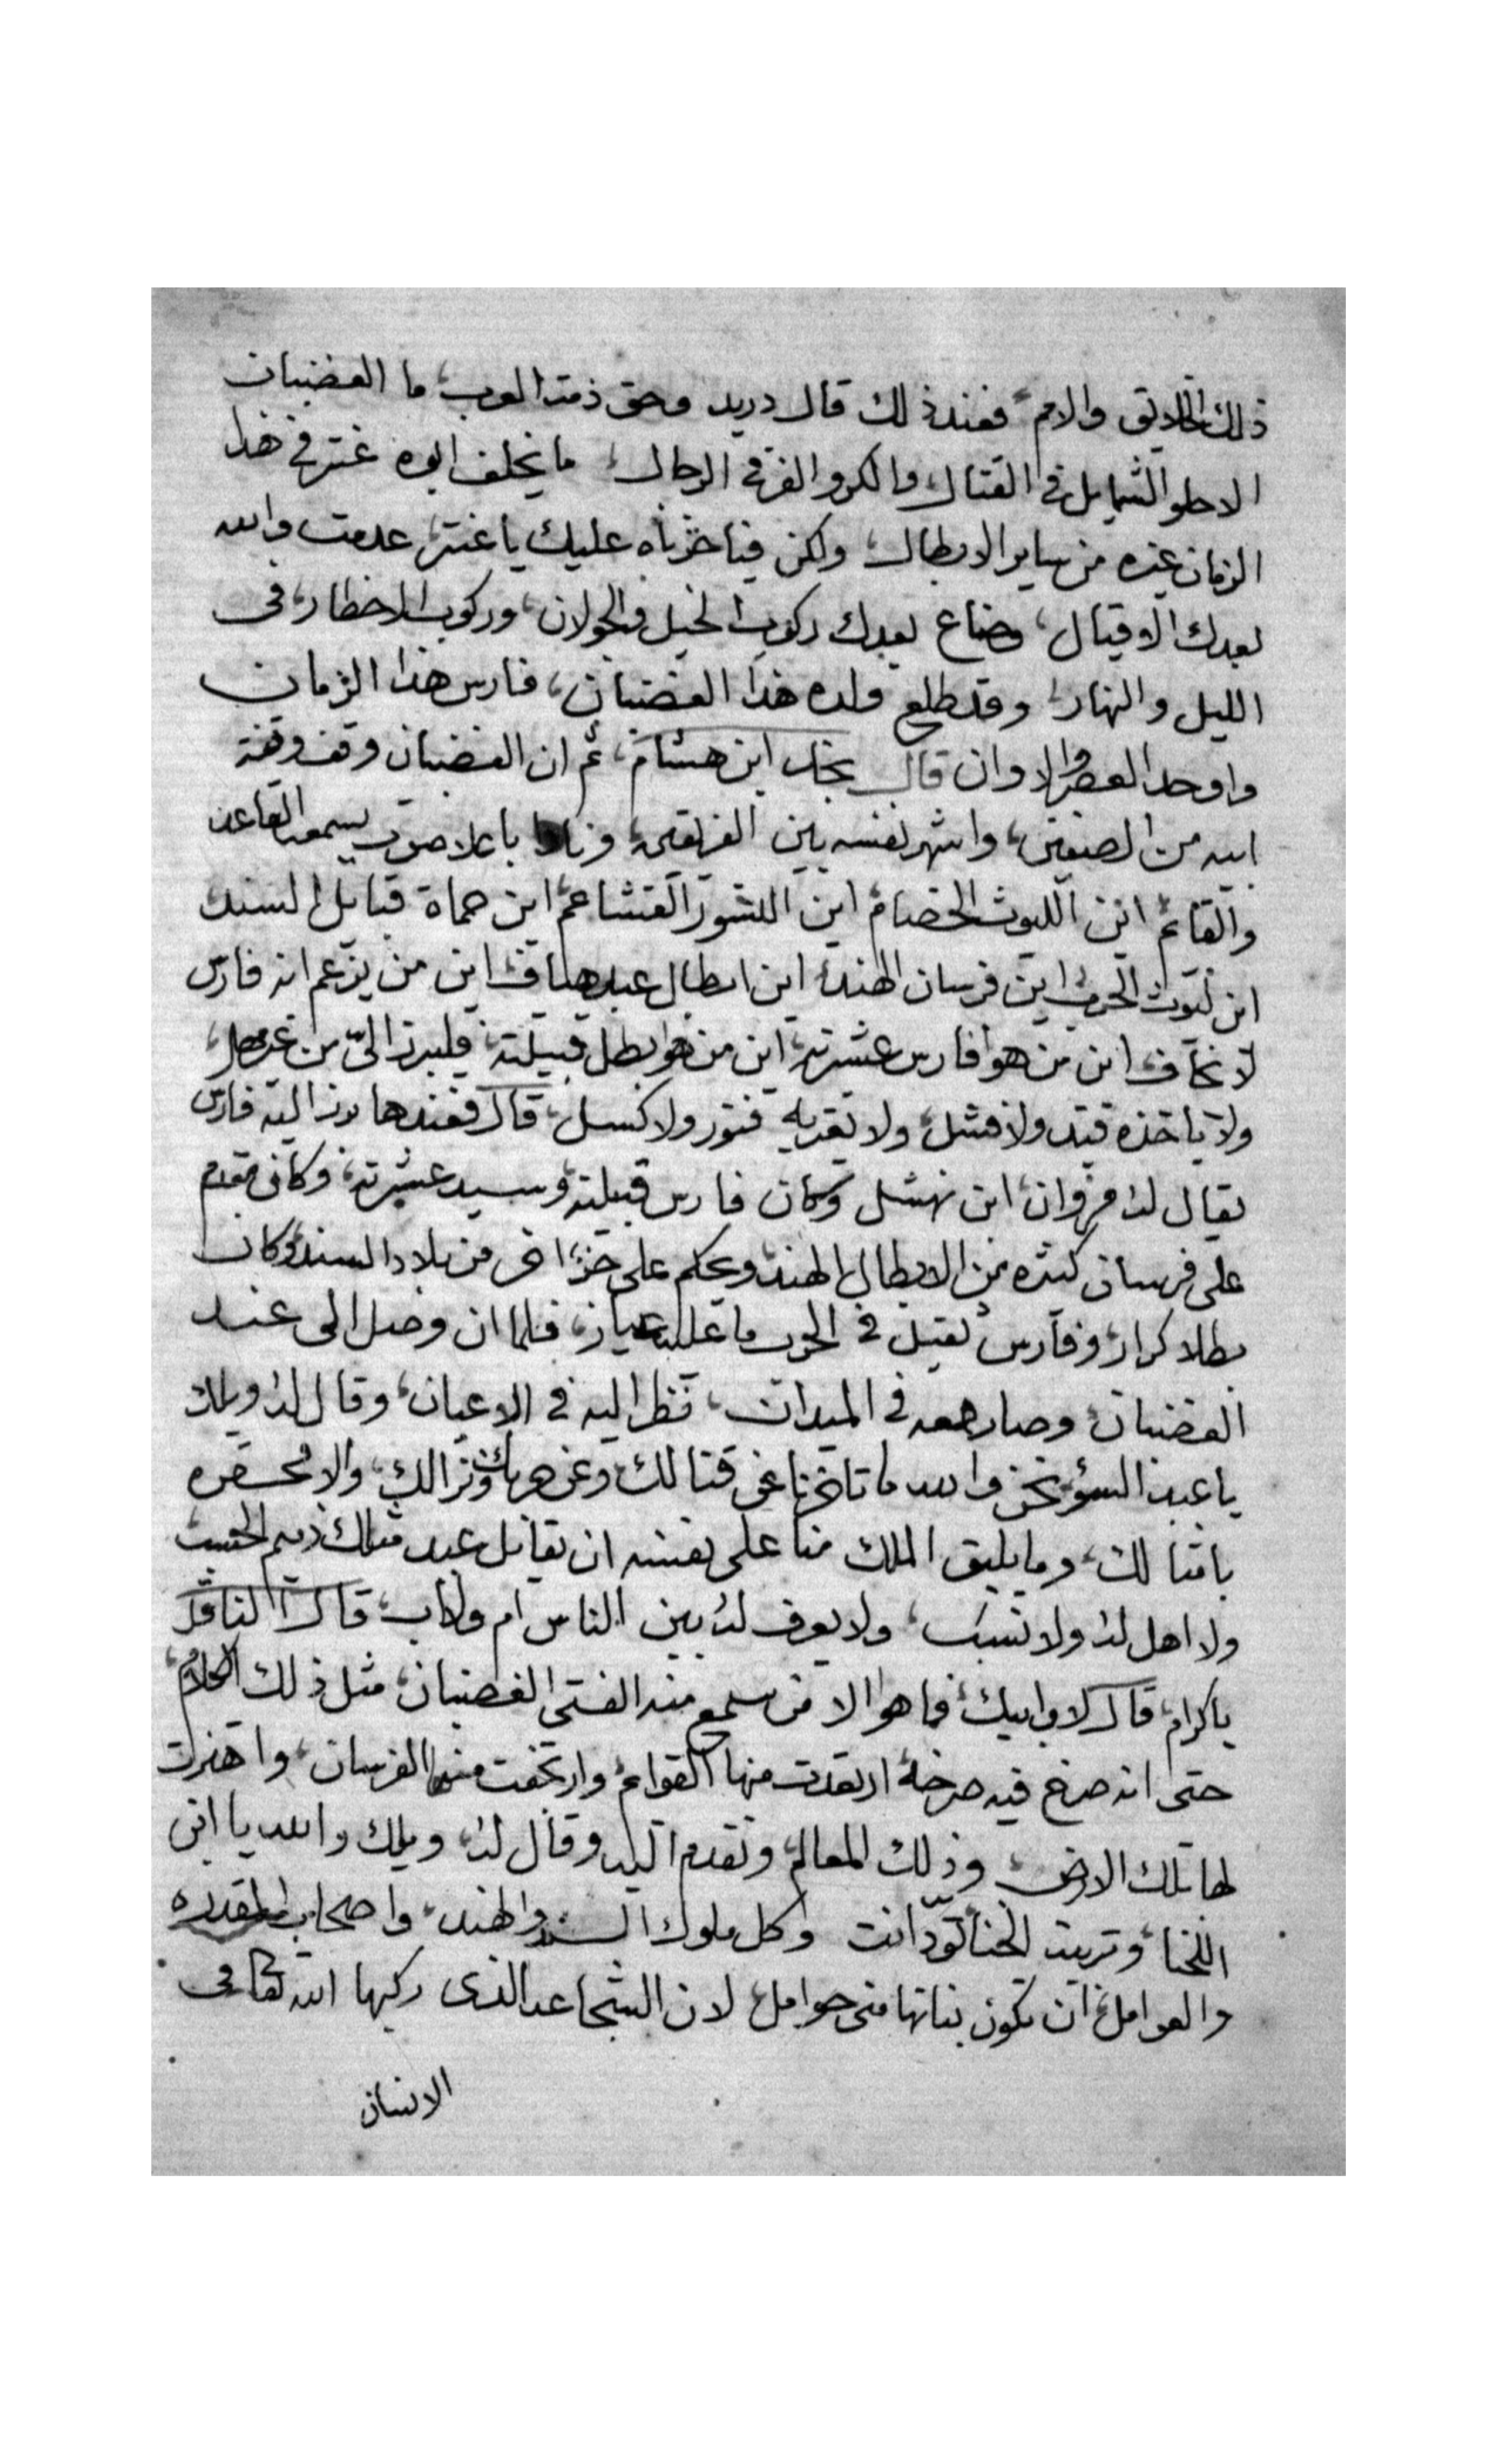 ذلك الخلايق والامم، فعند ذلك قال دريد وحق ذمة العرب، ما الغضبان
الا حلو الشمايل في القتال والكر والفر في الرجال، ما يخلف ابوه عنتر في هذا
الزمان غيره من ساير الابطال، ولكن فيا حزناه عليك يا عنتر، عدمت والله
بعدك الاقيال، وضاع بعدك ركوب الخيل والجولان، وركوب الاخطار، في
الليل والنهار، وقد طلع ولده هذا الغضبان، فارس هذا الزمان
واوحد العصر والاوان قال نجد ابن هشام، ثم ان الغضبان وقف وقفة
ابيه من الصفين، واشهر نفسه بين الفريقين، ونادا باعلا صوت يسمعه القاعد
والقائم اين الليوث الخضام اين النسور القشاعم اين حماة قبايل السند
اين ليوث الحرب اين فرسان الهند، اين ابطال عبد هياف اين من يزعم انه فارس
لا نخاف اين من هوا فارس عشيرته، اين من هو بطل قبيلته، فليبرز اليّ من غير مهل،
ولا ياخذه فيه ولا فشل، ولا تعتريه فتور ولا كسل، قال فعندها برز اليه فارس
يقال له مروان ابن نهشل وكان فارس قبيلته وسيد عشيرته، وكان مقدم
على فرسان كثيره من الابطال الهند ويحكم على جزء اخر من بلاد السند وكان
بطلا كرار، وفارس ثقيل في الحرب ما عليه عيار، فلما ان وصل الى عند
الغضبان وصار معه في الميدان، نظر اليه في الاعيان، وقال له ويلك
يا عبد السؤ نحن والله ما تاخرنا عن قتالك وعن حربك ونزالك، والا محقره
باقتالك، وما يليق الملك منا على نفسه ان يقاتل عبد مثلك ذميم الحسب
ولا اهل له ولا نسب، ولا يعرف له بين الناس ام ولا اب، قال الناقل
ياكرام، قال لا وابيك، فما هوا الا من سمع منه الفتى الغضبان، مثل ذلك الكلام،
حتى انه صرخ فيه صرخة ارتعدت منها القوائم، وارتجفت منها الفرسان، واهتزت
لها تلك الارض، وذلك المعالم، وتقدم اليه وقال له، ويلك والله يا ابن
اللخنا، وتربية الخنا تودّ انت وكل ملوك السند والهند، واصحاب المقدره
والعوامل، ان تكون بناتها مني حوامل، لان الشجاعه الذي ركبها الله تعالى في
الانسان